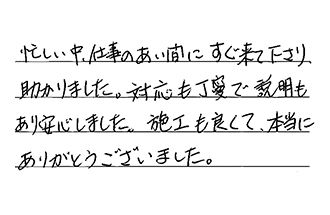 忙しい中、仕事のあい間に すぐ来て下さり
助かりました。対応も丁寧で説明も
あり安心しました。施工も良くて、本当に
ありがとうございました。